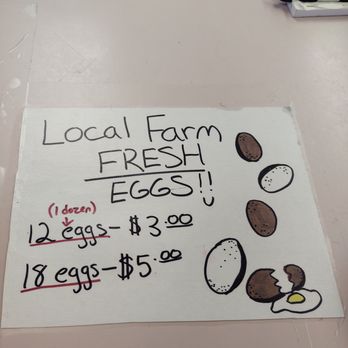 Local Farm
FRESH
EGGS!!
(1 dozen)
12 eggs - $3.00
18 eggs - $5.00